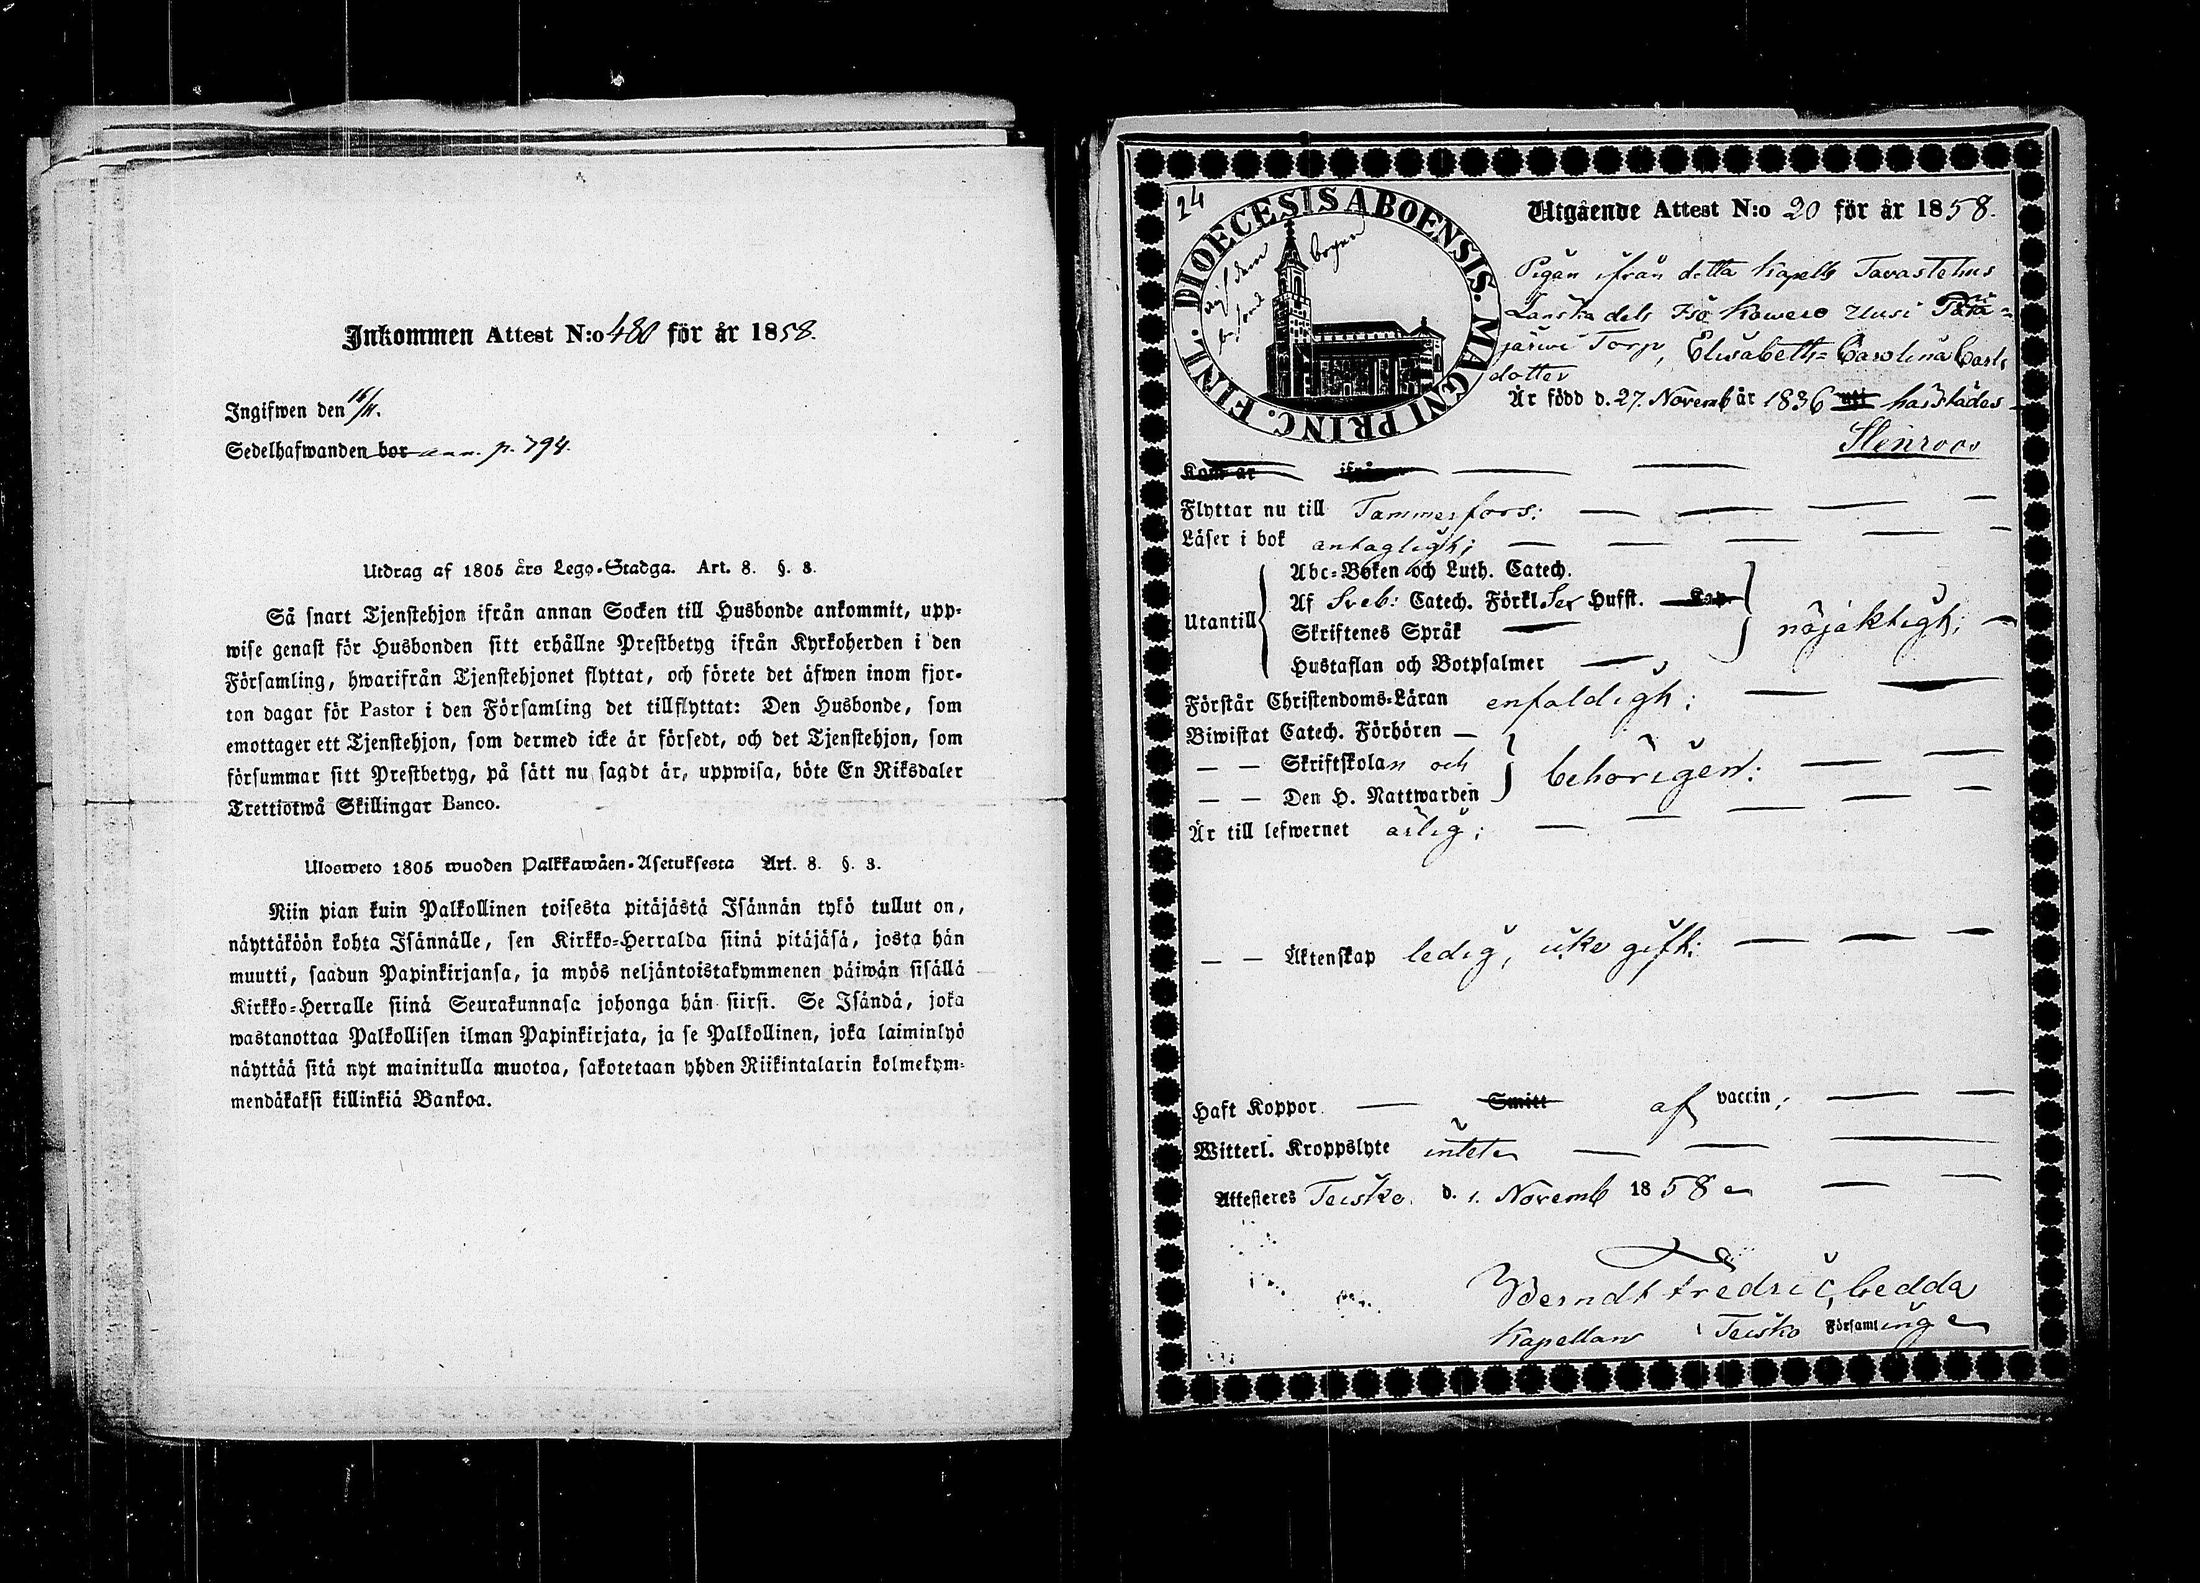 Inkommen Attest N:o 480 för år 1858.
Ingifwen den 16/11.
Sedelhafwanden bor ann. p. 794.
Utdrag af 1805 års Lego-Stadga. Art. 8. §. 3.
Så snart Tjenstehjon ifrån annan Socken till Husbonde ankommit, upp-
wise genast för Husbonden sitt erhållne Prestbetyg ifrån Kyrkoherden i den
Församling, hwarifrån Tjenstehjonet flyttat, och förete det äfwen inom fjor-
ton dagar för Pastor i den Församling det tillflyttat: Den Husbonde, som
emottager ett Tjenstehjon, som dermed icke är försedt, och det Tjenstehjon, som
försummar sitt Prestbetyg, på sätt nu sagdt är, uppwisa, böte En Riksdaler
Trettiotwå Skillingar Banco.
Ulosweto 1805 wuoden Palkkawäen-Asetuksesta Art. 8. §. 3.
Niin pian kuin Palkollinen toisesta pitäjästä Isännän tykö tullut on,
näyttäköön kohta Isännälle, sen Kirkko-Herralda siinä pitäjäsä, josta hän
muutti, saadun Papinkirjansa, ja myös neljäntoistakymmenen päiwän sisällä
Kirkko-Herralle siinä Seurakunnasa johonga hän siirsi. Se Isändä, joka
wastanottaa Palkollisen ilman Papinkirjata, ja se Palkollinen, joka laiminlyö
näyttää sitä nyt mainitulla muotoa, sakotetaan yhden Riikintalarin kolmekym-
mendäkaksi killinkiä Bankoa.
24
DIOECESIS ABOENSIS. MAGNI PRINC. FINL.
Utgående Attest N:o 20 för år 1858.
Pigan ifrån detta Kapells Tavastehus
Länska dels Iso Kowero Uusi
järwi Torp, Elisabeth= Carolina Carls
dotter
Är född d. 27. Novemb år 1836 härstädes
Stenroos
Kom år ifrån
Flyttar nu till Tammerfors:
Läser i bok antagligt;
Abc-Boken och Luth. Catech.
Utantill Af Sveb: Catech. Förkl. Ser Hufst. Cap.
Skriftenes Språk nöjaktigt;
Hustaflan och Botpsalmer
Förstår Christendoms-Läran enfaldigt;
Biwistat Catech. Förhören
— — Skriftskolan och behörigen:
— — Den H. Nattwarden
Är till lefwernet ärlig;
— — Äktenskap ledig, icke gift:
Haft Koppor Smitt af vaccin;
Witterl. Kroppslyte intet
Attesteres Teisko. d. 1. Novemb 1858
Berndt Fredric Cedda
Kapellan i Teisko Församling